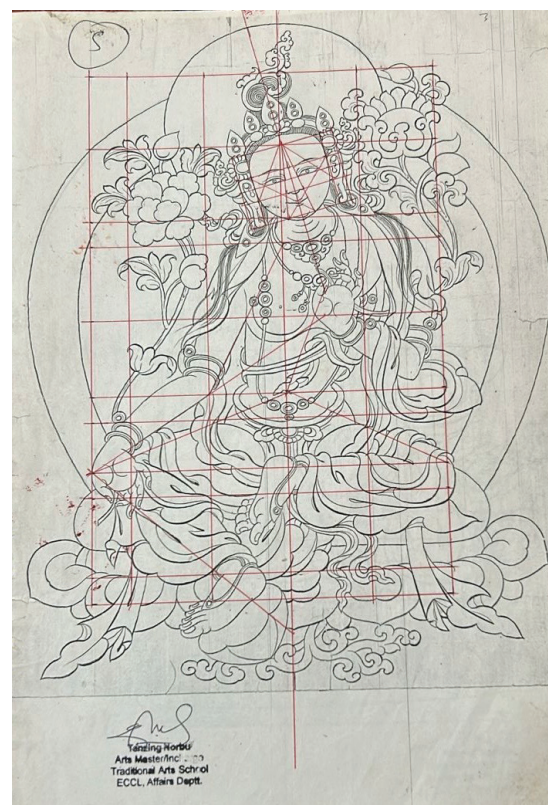 5
3
Tenzing Norbu
Arts Master/Inc
Traditional Arts School
ECCL, Affairs Deptt.